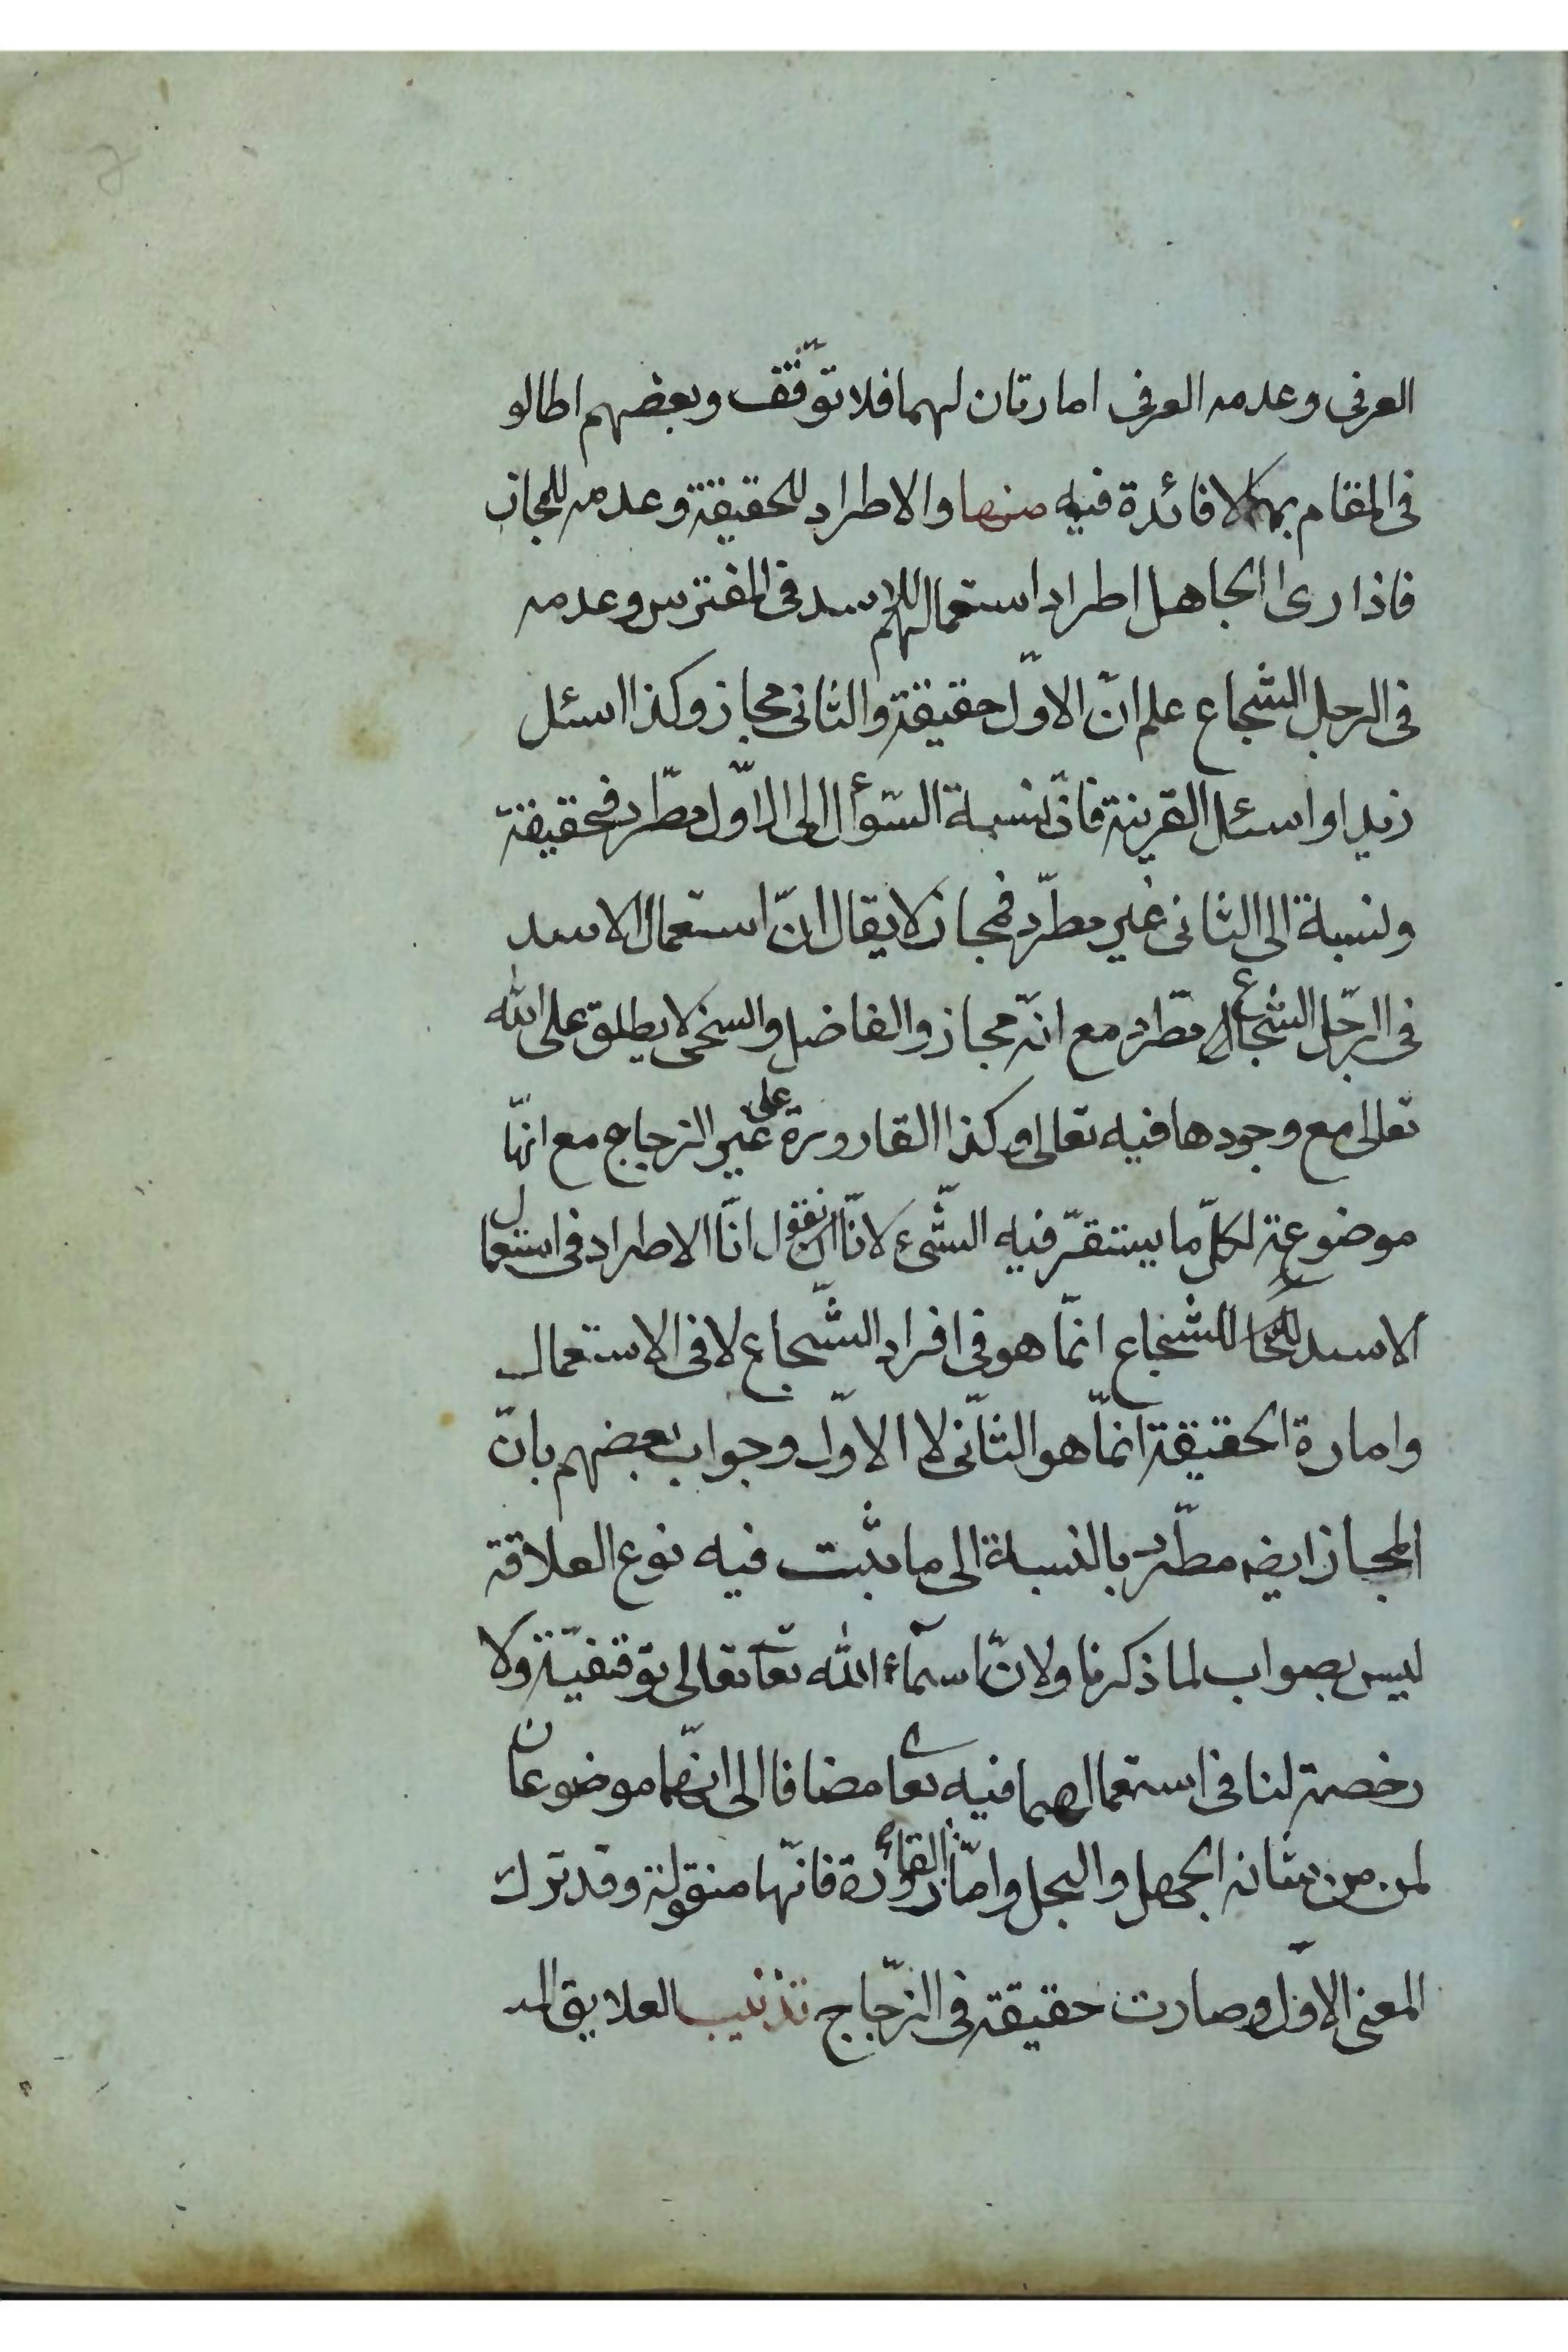 العرفى وعدمه العرفى امارتان لهما فلا توّقف وبعضهم اطالو
فى المقام بما لا فائدة فيه منها والاطراد للحقيقة وعدمه للمجاز
فاذا رى الجاهل اطراد استعمالهم للاسد فى المفترس وعدمه
فى الرجل الشجاع علم انّ الاوّل حقيقة والثانى مجاز وكذا اسئل
زيدا واسئل القرينة فانّ نسبة السّوأل الى الاوّل مطّرد فحقيقة
ونسبة الى الثانى غير مطرّد فمجاز لا يقال انّ استعمال الاسد
فى الرّجل الشجاع مطّرد مع انّه مجاز والفاضل والسخى لا يطلق على الله
تعالى مع وجودها فيه تعالى وكذا القارورة على غير الزجاج مع انهّا
موضوعة لكلّ ما يستقرّ فيه الشّئ لانّا نقول انّا الاطراد فى استعمال
الاسد للشجاع انمّا هو فى افراد الشّجاع لا فى الاستعمال
وامارة الحقيقة انمّا هو الثّانى لا الاوّل وجواب بعضهم بانّ
المجاز ايضه مطّرد بالنسبة الى ما ثبت فيه نوع العلاقة
ليس بصواب لما ذكرنا ولانّ اسمآء الله تعا تعالى توقتفيّة ولا
رخصة لنا فى استعمالهما فيه تعا مضافا الى انهّما موضوعان
لمن من شانه الجهل والبخل وامّا القارورة فانّها منقولة وقد ترك
المعنى الاوّل وصارت حقيقة فى الزّجاج تذنيب العلايق